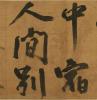 中宿
人間別